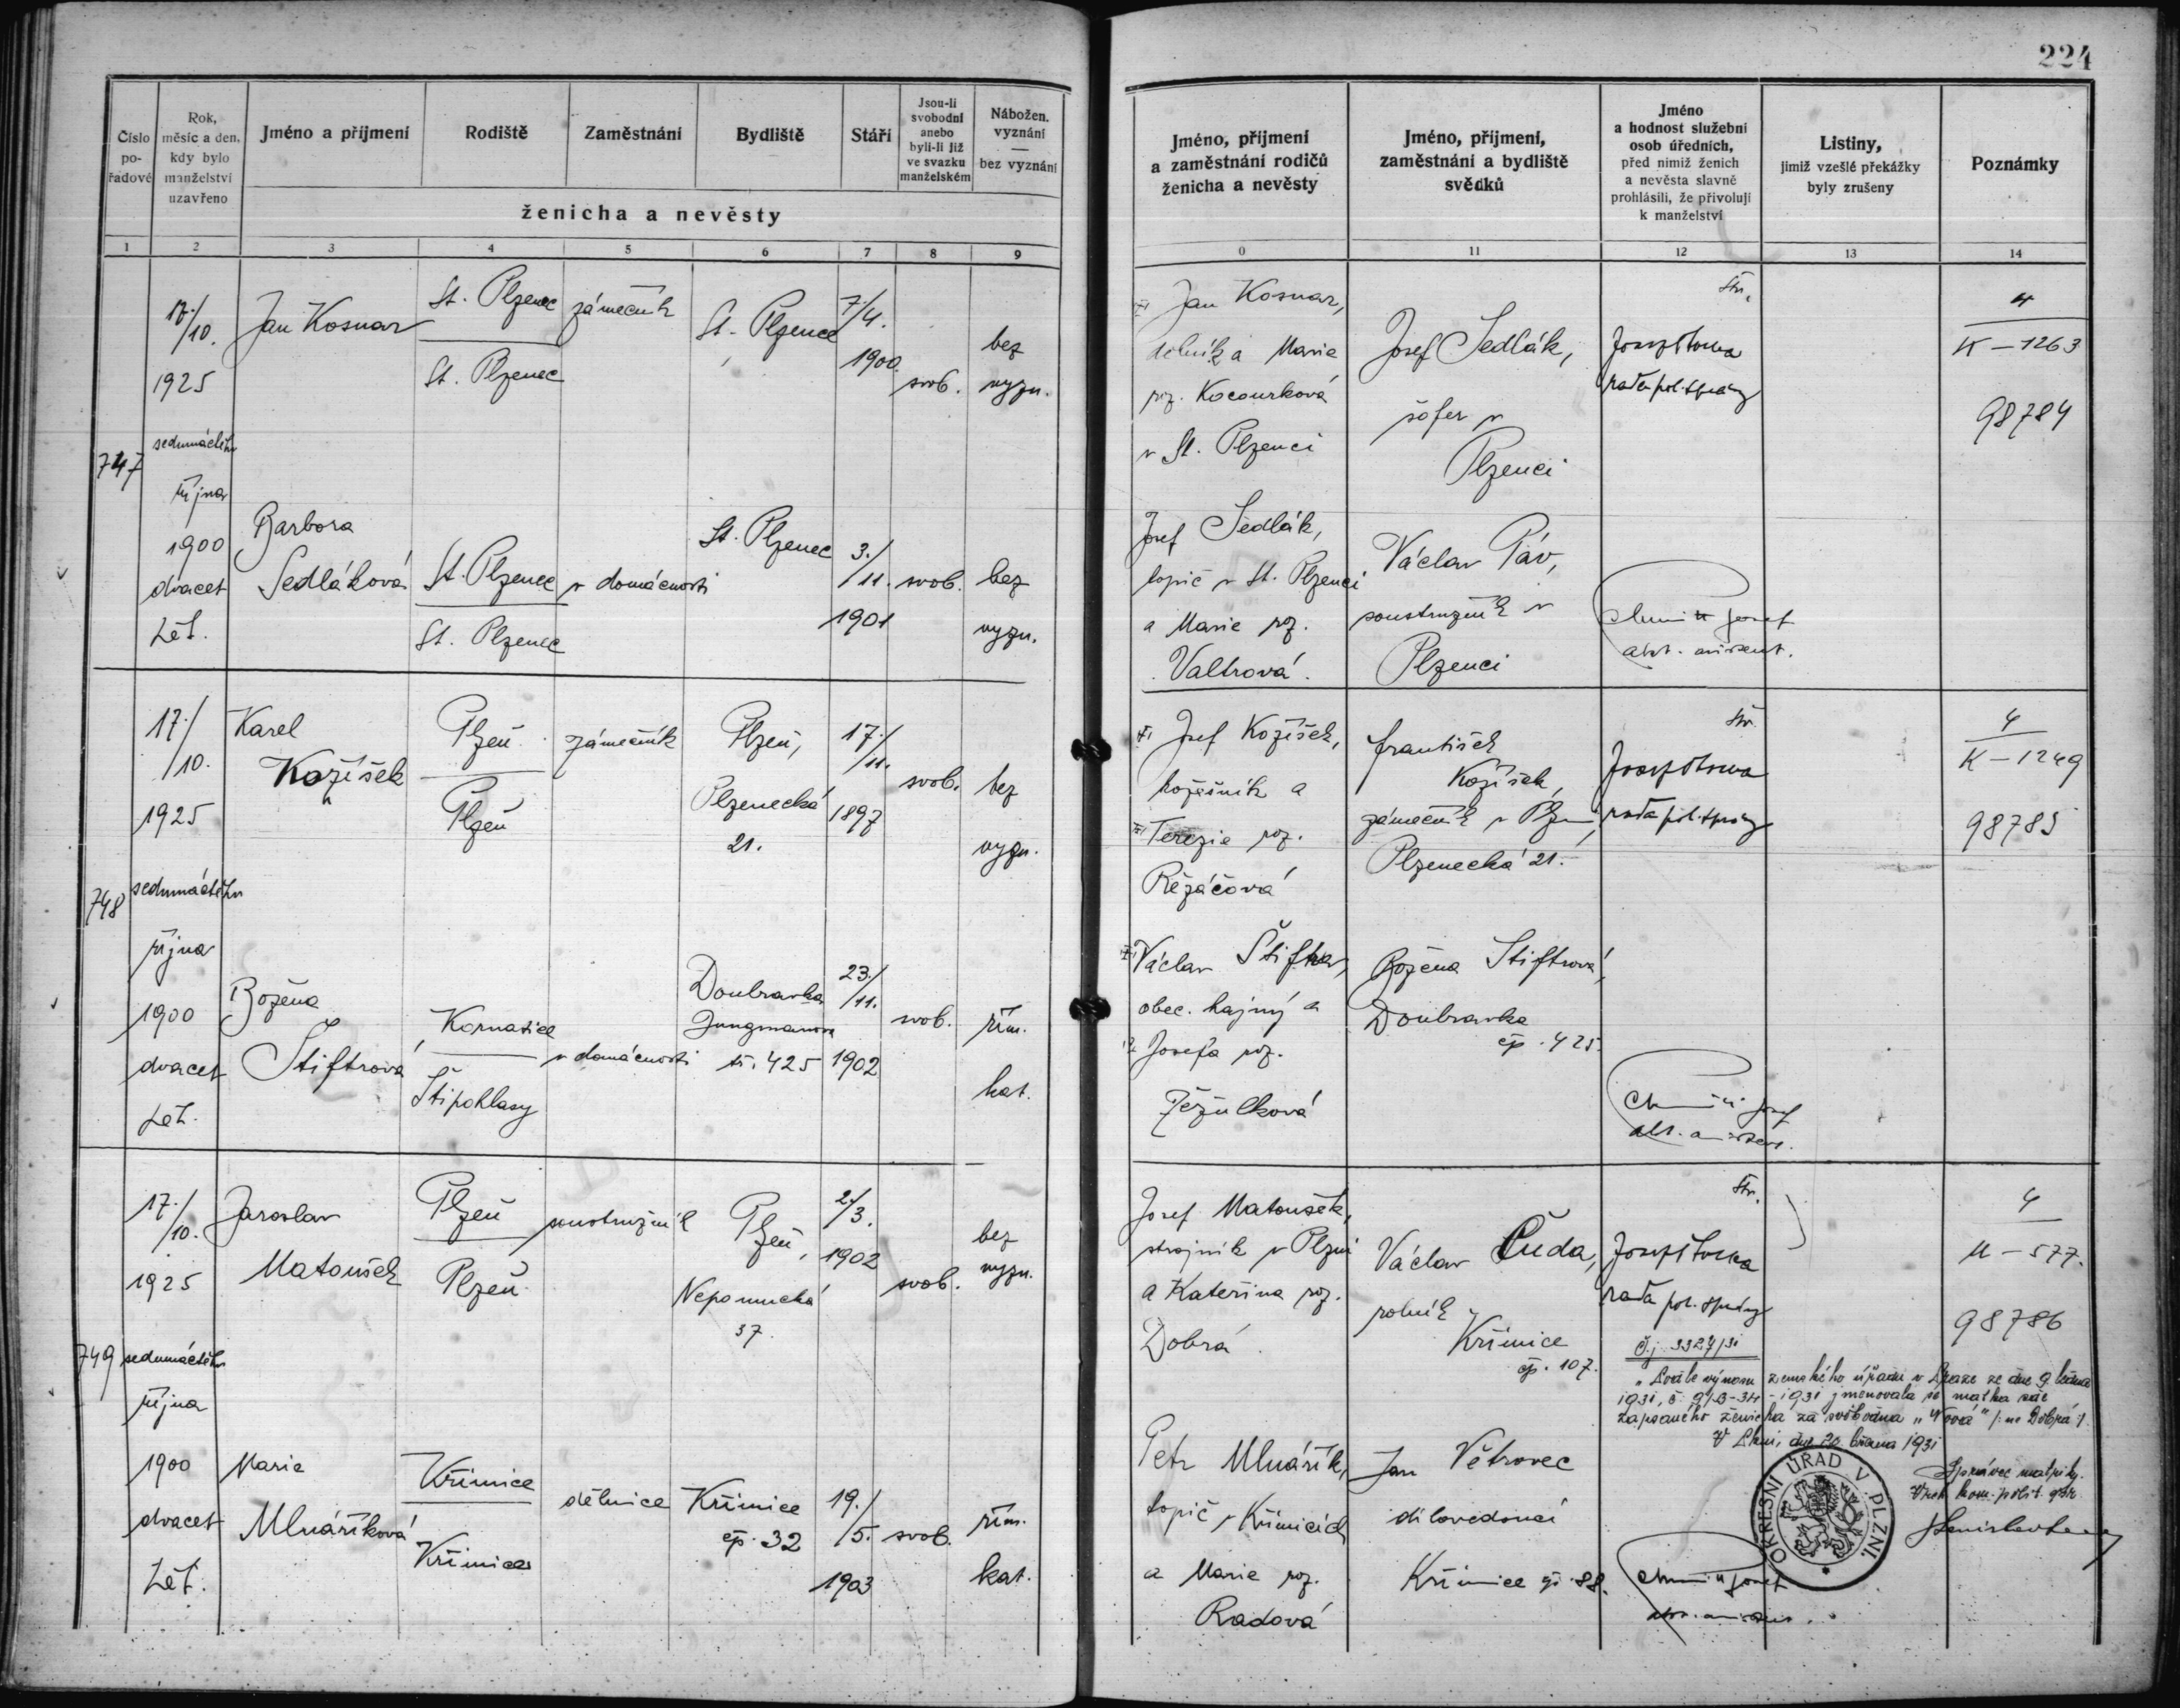 224
Číslo po-řadové
Rok, měsíc a den, kdy bylo manželství uzavřeno
Jméno a příjmení
Rodiště
Zaměstnání
Bydliště
Stáří
Jsou-li svobodni anebo byli-li již ve svazku manželském
Nábožen. vyznání — bez vyznání
ženicha a nevěsty
Jméno, příjmení a zaměstnání rodičů ženicha a nevěsty
Jméno, příjmení, zaměstnání a bydliště svědků
Jméno a hodnost služební osob úředních, před nimiž ženich a nevěsta slavně prohlásili, že přivolují k manželství
Listiny, jimiž vzešlé překážky byly zrušeny
Poznámky
1 2 3 4 5 6 7 8 9 0 11 12 13 14
747
17./10.
1925
sedmnáctého
října
1900
dvacet
pět.
Jan Kosnar
St. Plzenec
St. Plzenec
zámečník
St. Plzenec
7./4.
1900
svob.
bez
vyzn.
Barbora
Sedláková
St. Plzenec
St. Plzenec
v domácnosti
St. Plzenec
3./11.
1901
svob.
bez
vyzn.
Jan Kosnar,
dělník a Marie
roz. Kocourková
v St. Plzenci
Josef Sedlák,
topič v St. Plzenci
a Marie roz.
Valtrová.
Josef Sedlák,
šofer v
Plzenci
Václav Páv,
soustružník v
Plzenci
rada pol. správy
4
K – 1263
98784
748
17./10.
1925
sedmnáctého
října
1900
dvacet
pět.
Karel
Kožíšek
Plzeň
Plzeň
zámečník
Plzeň,
Plzenecká
21.
17./11.
1897
svob.
bez
vyzn.
Božena
Štiftrová
Kornatice
Štipoklasy
v domácnosti
Doubravka
Jungmanova
tř. 425
23./11.
1902
svob.
řím.
kat.
Josef Kožíšek,
kožešník a
Terezie roz.
Řežáčová
Václav Štiftar,
obec. hajný a
Josefa roz.
Ježulková
František
Kožíšek,
zámečník v Plzni,
Plzenecká 21.
Božena Štiftrová,
Doubravka
čp. 425.
rada pol. správy
4
K – 1249
98785
749
17./10.
1925
sedmnáctého
října
1900
dvacet
pět.
Jaroslav
Matoušek
Plzeň
Plzeň
soustružník
Plzeň,
Nepomucká
37.
2./3.
1902
svob.
bez
vyzn.
Marie
Mlnáříková
Křimice
Křimice
dělnice
Křimice
čp. 32
19./5.
1903
svob.
řím.
kat.
Josef Matoušek,
strojník v Plzni
a Kateřina roz.
Dobrá.
Petr Mlnářík,
topič v Křimicích
a Marie roz.
Radová
Václav Čuda,
rolník
Křimice
čp. 107.
Jan Větrovec
dílovedoucí
Křimice čp. 88.
rada pol. správy
4
M – 577.
98786
Č.j. 3324/31
zemského úřadu v Praze ze dne 9. března
1931 jmenovala se matka zde
zapsaného ženicha za svobodna
dne 20. března 1931
Správce matriky.
OKRESNÍ ÚŘAD V PLZNI